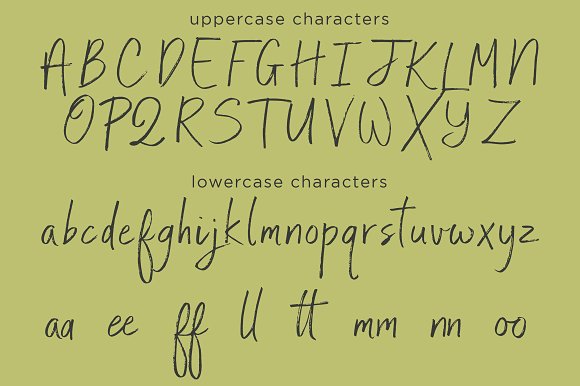 uppercase characters
ABCDEFGHIJKLMN
OPQRSTUVWXYZ
lowercase characters
abcdefghijklmnopqrstuvwxyz
aa ee ff ll tt mm nn oo